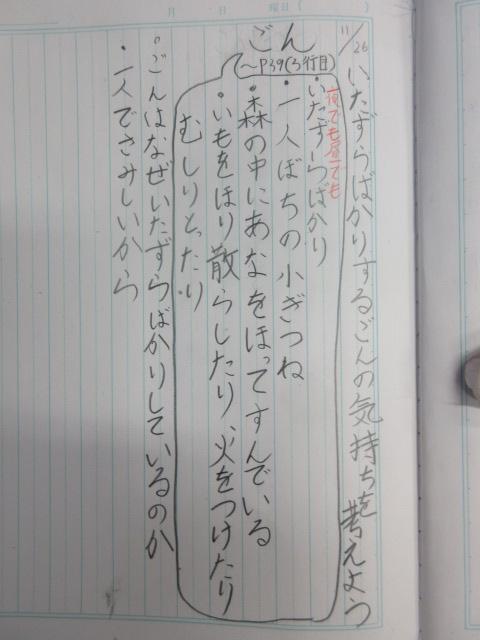 月 日 曜日(
11/26
いたずらばかりするごんの気持ちを考えよう
ごん
〜P39(3行目)
夜でも昼でも
・いたずらばかり
・一人ぼちの小ぎつね
・森の中にあなをほってすんでいる
・いもをほり散らしたり、火をつけたり
むしりとったり
・ごんはなぜいたずらばかりしているのか
・一人でさみしいから